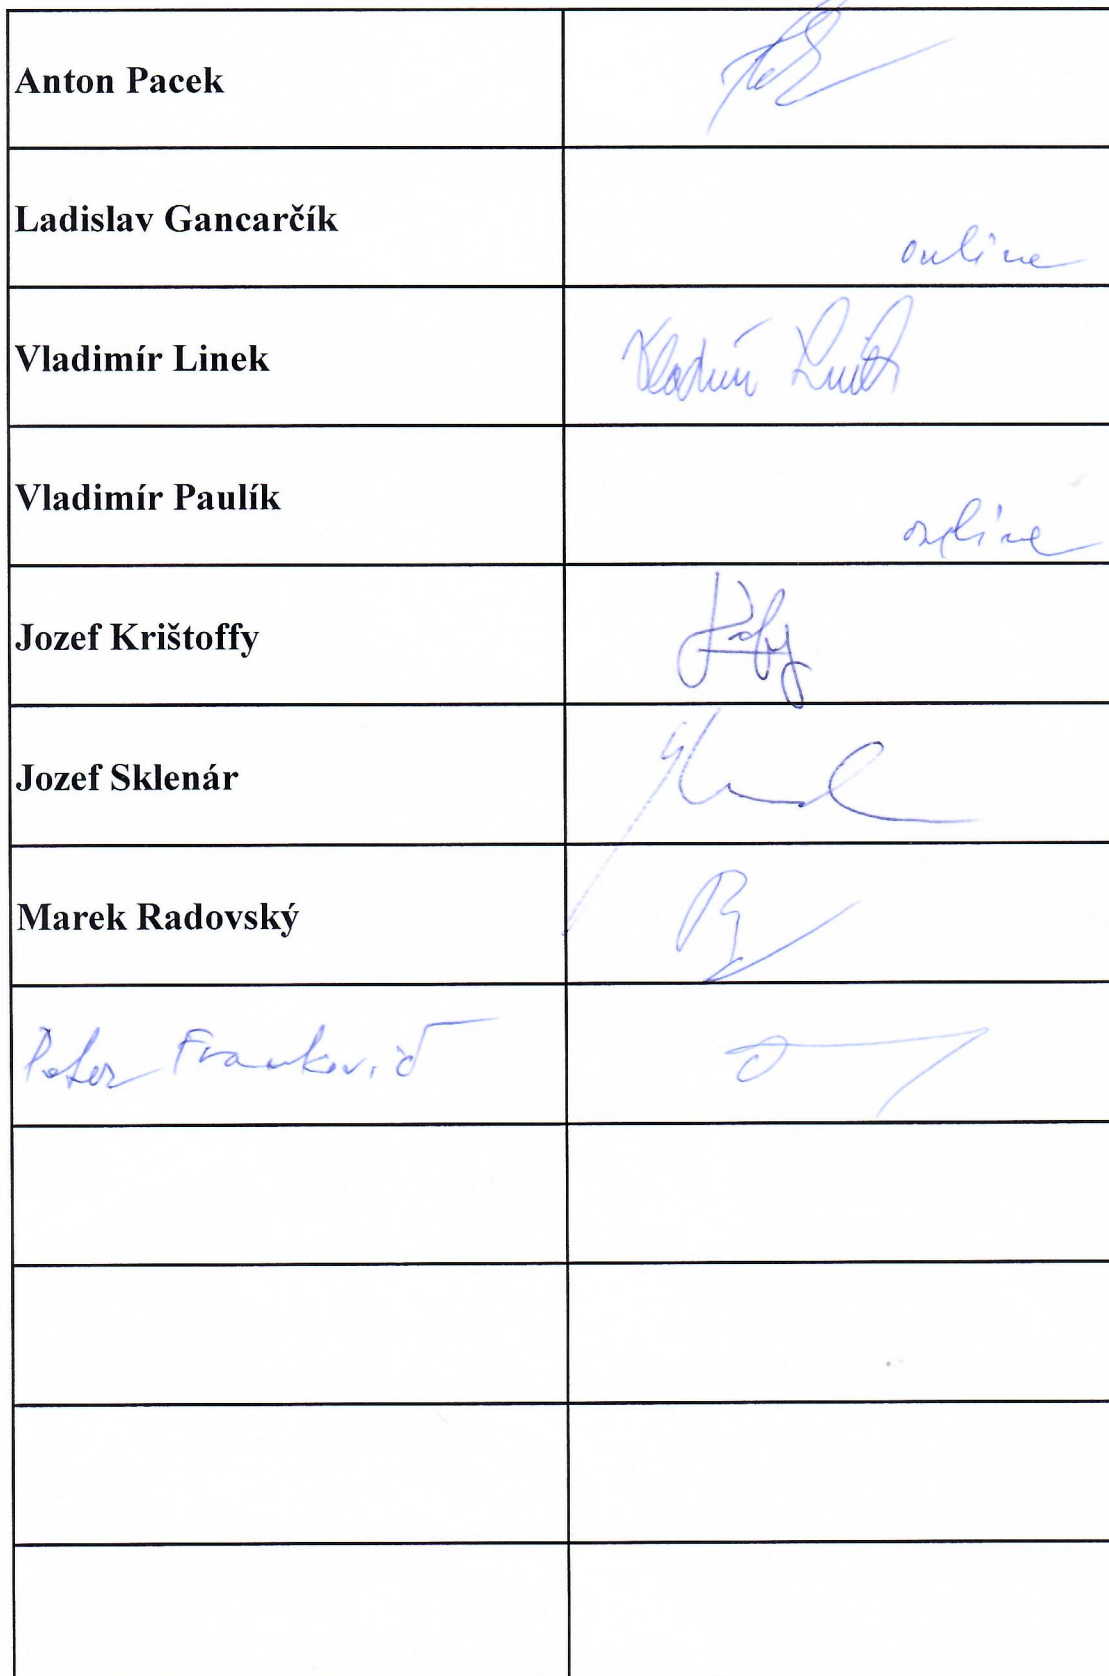 Anton Pacek
Ladislav Gancarčík
online
Vladimír Linek
Vladimír Linek
Vladimír Paulík
online
Jozef Krištoffy
Jozef Sklenár
Marek Radovský
Peter Frankovič